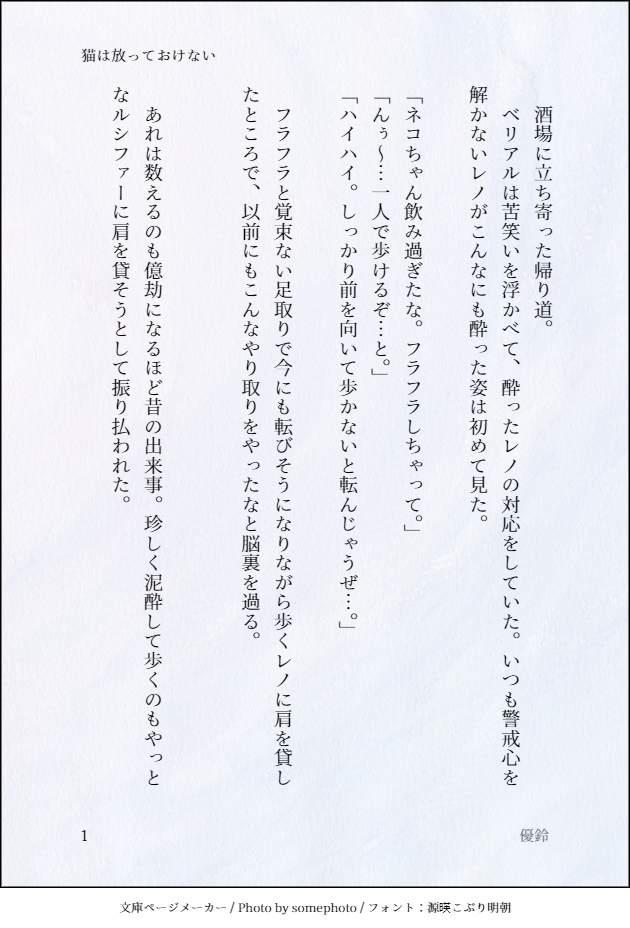 猫は放っておけない
酒場に立ち寄った帰り道。
ベリアルは苦笑いを浮かべて、酔ったレノの対応をしていた。いつも警戒心を
解かないレノがこんなにも酔った姿は初めて見た。
「ネコちゃん飲み過ぎたな。フラフラしちゃって。」
「んぅ〜…一人で歩けるぞ…と。」
「ハイハイ。しっかり前を向いて歩かないと転んじゃうぜ…。」
フラフラと覚束ない足取りで今にも転びそうになりながら歩くレノに肩を貸し
たところで、以前にもこんなやり取りをやったなと脳裏を過る。
あれは数えるのも億劫になるほど昔の出来事。珍しく泥酔して歩くのもやっと
なルシファーに肩を貸そうとして振り払われた。
1
優鈴
文庫ページメーカー / Photo by somephoto / フォント：源暎こぶり明朝